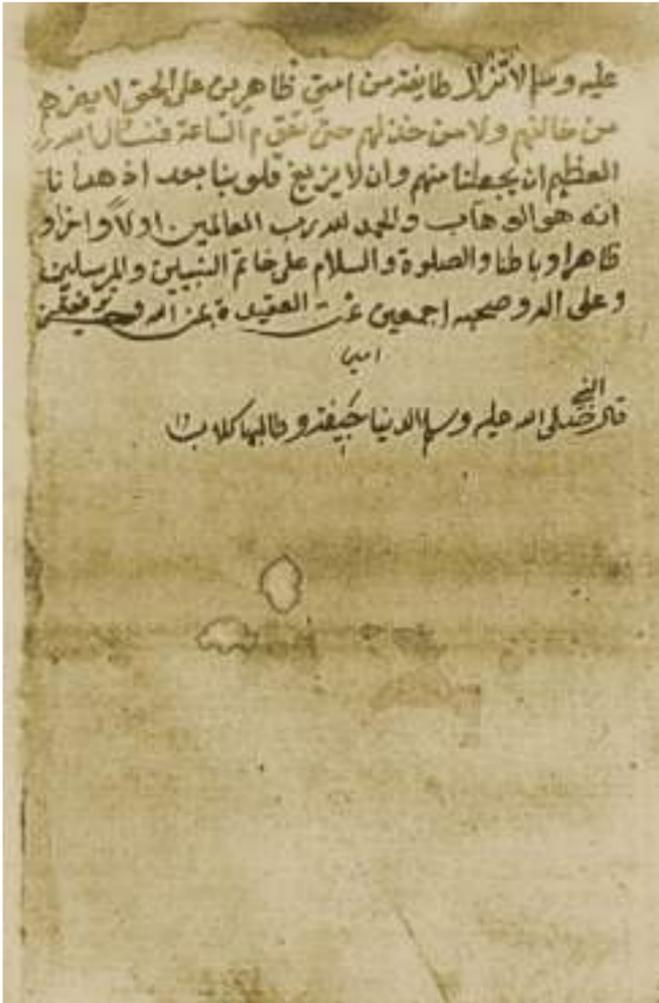 عليه وسلم لا تزال طايفة من امتي ظاهرين على الحق لا يضرهم
من خالفهم ولا من خذلهم حتى تقوم الساعة فنسال الله
العظيم ان يجعلنا منهم وان لا يزيغ قلوبنا بعد اذ هدانا
انه هو الوهاب والحمد لله رب العالمين اولا واخرا و
ظاهرا وباطنا والصلوة والسلام على خاتم النبيين والمرسلين
وعلى اله وصحبه اجمعين تمت العقيدة بمن الله و
امين
قال النبي صلى الله عليه وسلم الدنيا جيفة وطالبها كلاب